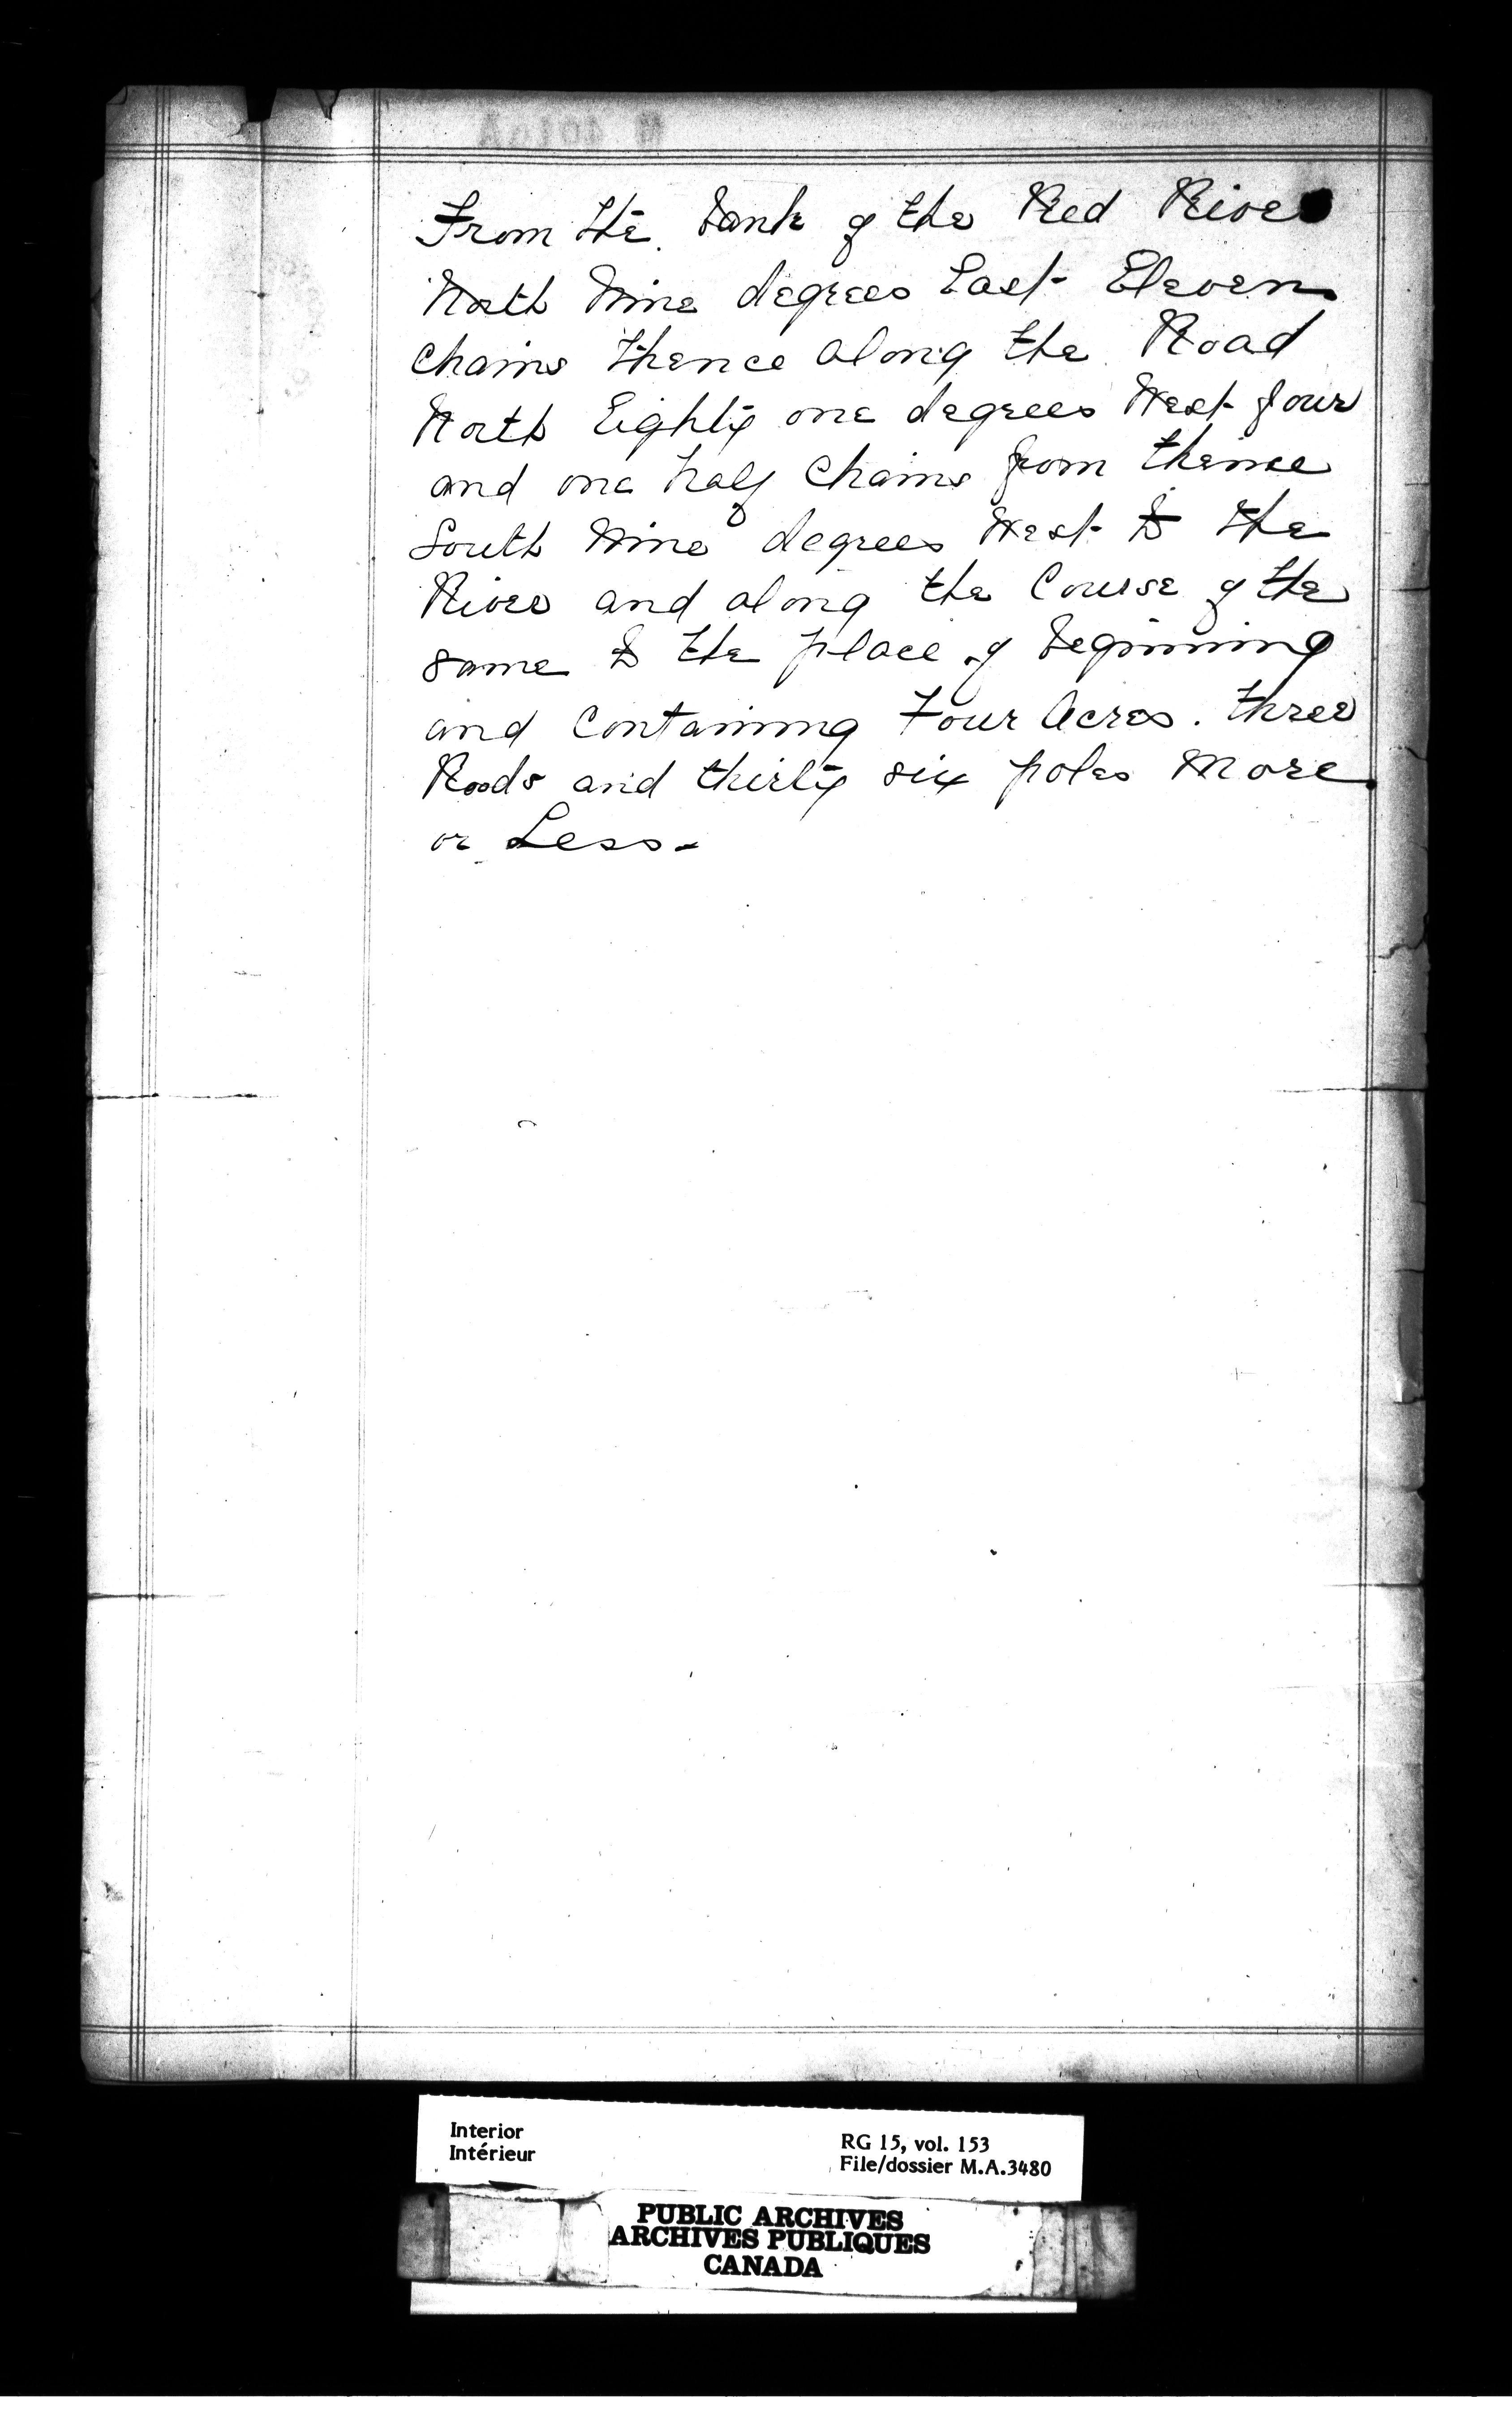 From the bank of the Red River
North Nine degrees East Eleven
Chains thence along the Road
North Eighty one degrees West four
and one half Chains from thence
South Nine degrees West to the
River and along the Course of the
same to the place of beginning
and Containing Four Acres. three
Roods and thirty six poles More
or Less.
Interior
Intérieur
RG 15, vol. 153
File/dossier M.A.3480
PUBLIC ARCHIVES
ARCHIVES PUBLIQUES
CANADA